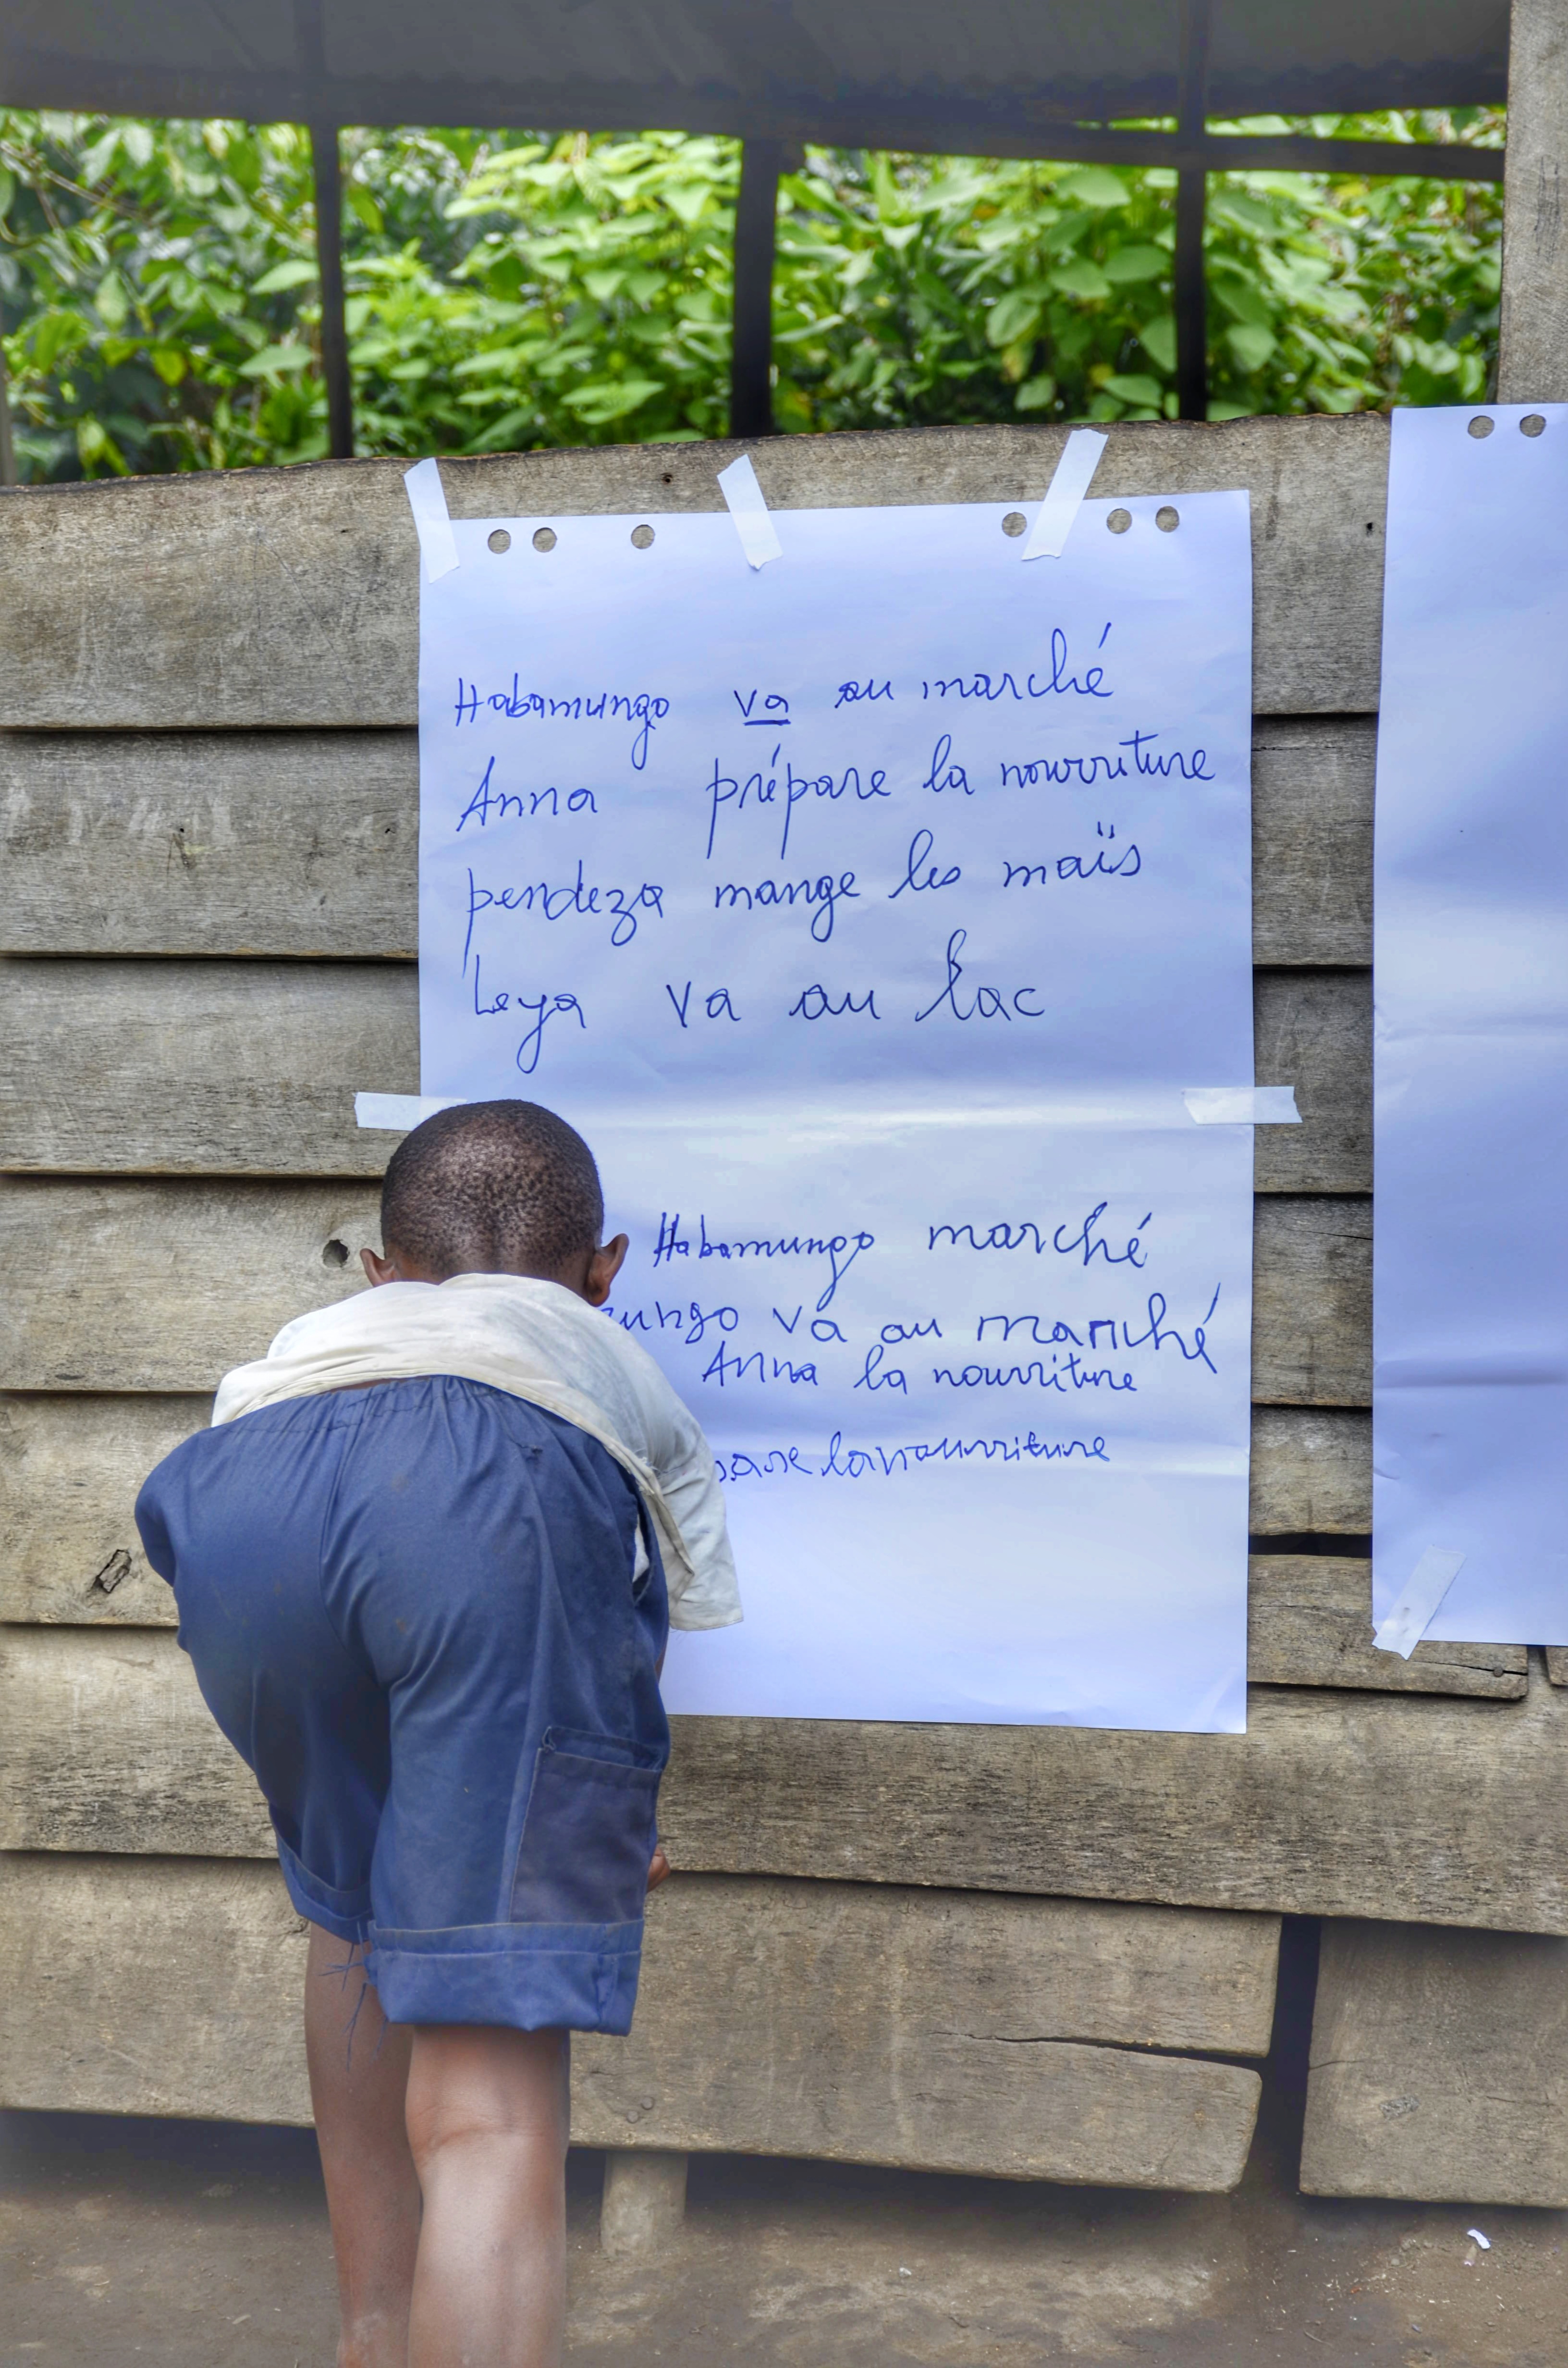 Habamungo va au marché
Anna prépare la nourriture
pendeza mange les maïs
Leya va au lac
Habamungo marché
va au marché
Anna la nourriture
la nourriture